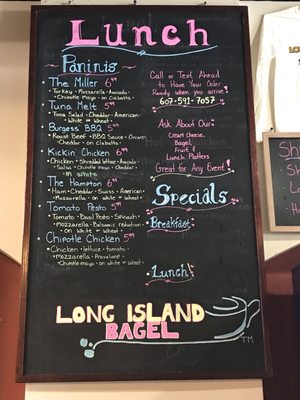 Lunch
~ Paninis ~
The Miller 6.99
• Turkey • Mozzarella • Avocado •
• Chipotle Mayo • on Ciabatta •
Tuna Melt 5.99
• Tuna Salad • Cheddar • American •
• White or Wheat •
Burgess BBQ 5.99
• Roast Beef • BBQ Sauce • Onion •
• Cheddar • on Ciabatta
Kickin' Chicken 6.99
• Chicken • Shredded lettuce • Avocado •
• Salsa • Chipotle mayo • Cheddar •
White
The Hampton 6.99
• Ham • Cheddar • Swiss • American •
• Mozzarella • on white or wheat •
Tomato Pesto 5.99
• Tomato • Basil Pesto • Spinach •
• Mozzarella • Balsamic reduction •
• on white or wheat •
Chipotle Chicken 5.99
• Chicken • lettuce • tomato •
• Mozzarella • Provolone •
• Chipotle mayo • on white or wheat •
Call or Text Ahead
to Have Your Order
Ready when you arrive!
607-591-7057
Ask About Our
Cream cheese,
Bagel,
Fruit &
Lunch Platters
Great for Any Event!
Specials
Breakfast:
Lunch:
LONG ISLAND
BAGEL
TM